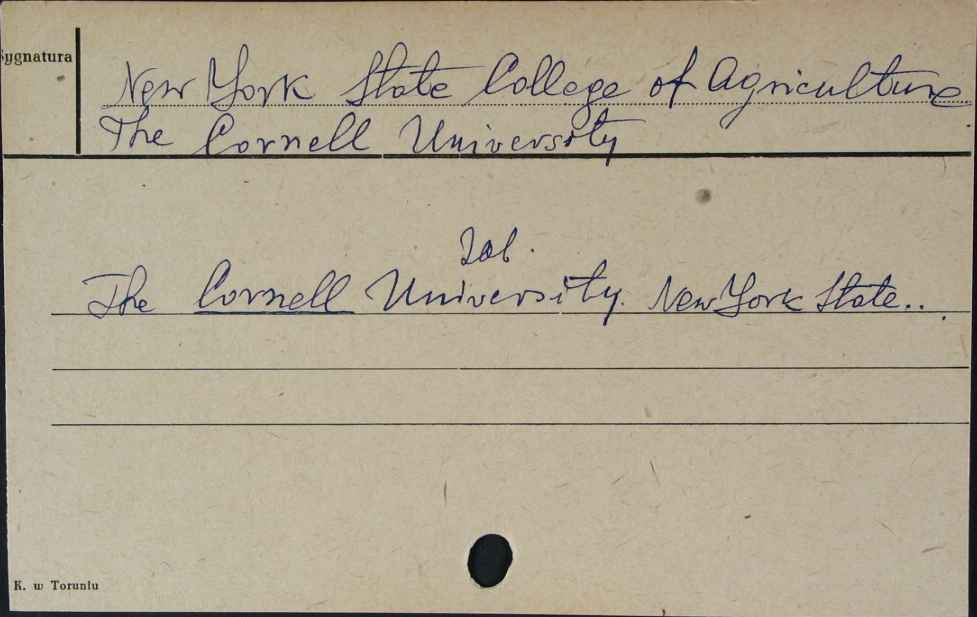 Sygnatura
New York State College of Agriculture
The Cornell University
zob.
The Cornell University. New York State...
K. w Toruniu